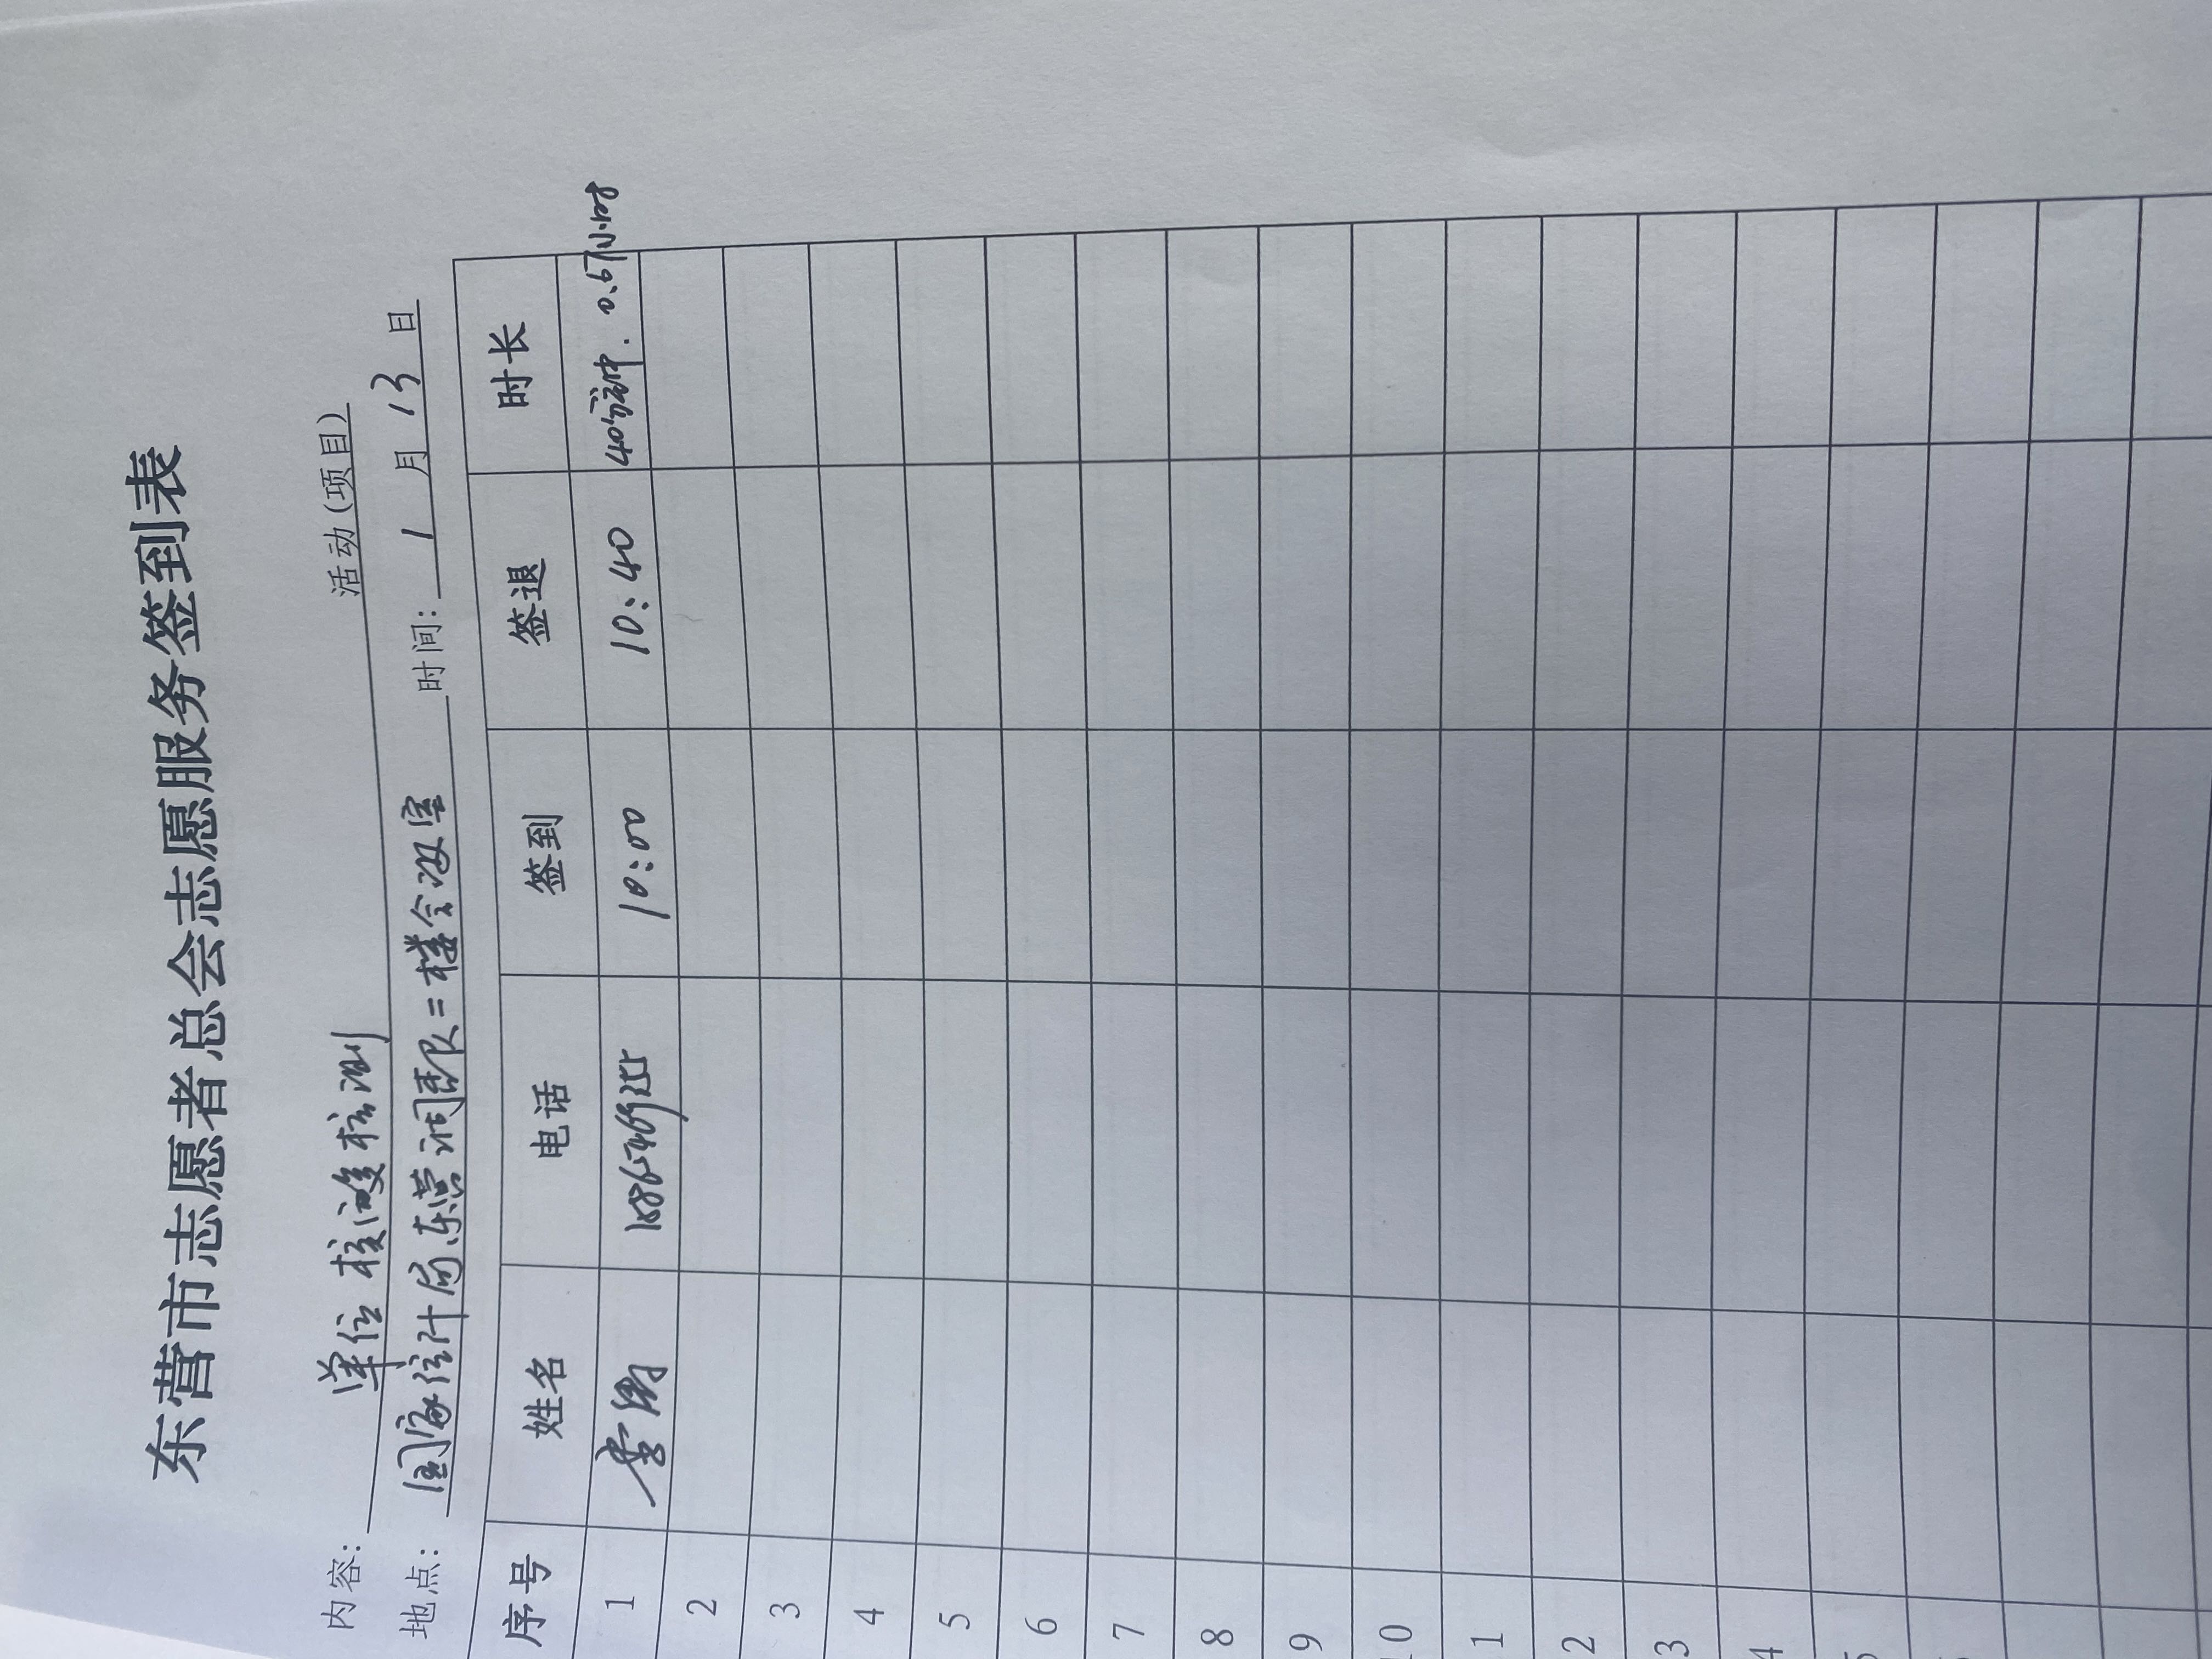 东营市志愿者总会志愿服务签到表
内容： 单位核酸检测 活动(项目)
地点：国家统计局东营调查队二楼会议室 时间： 1 月 13 日
序号 姓名 电话 签到 签退 时长
1 李 10:00 10:40 40分钟. 0.67小时
2
3
4
5
6
7
8
9
10
1
2
3
4
5